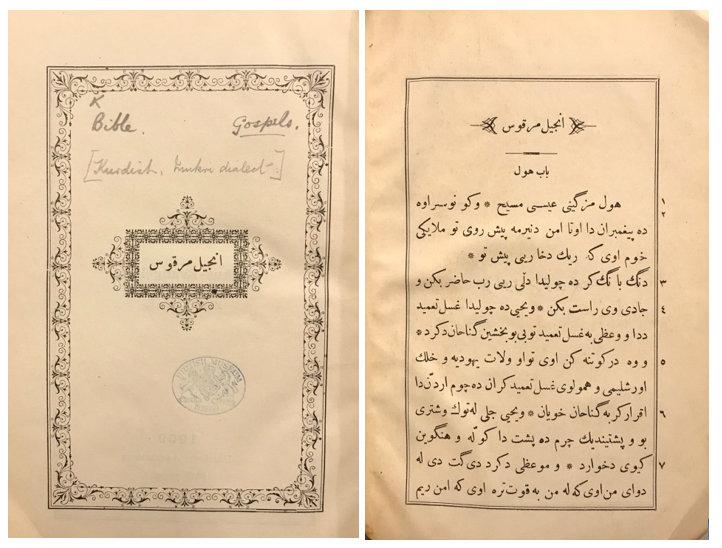 K
Bible.
Gospels.
[Kurdish, Mukri dialect.]
انجيل مرقوس
BRITISH MUSEUM
انجيل مرقوس
باب هول
١ هول مزگينى عيسى مسيح * وكو نوسراوه
٢ ده پيغمبران دا اوتا امن دنيرمه پيش روى تو ملايكى
خوم اوى كه ريك دخا ريى پيش تو *
٣ دنگ بانگ كر ده چوليدا دلّى ريى رب حاضر بكن و
٤ جادى وى راست بكن * ويحيى ده چوليدا غسل تعميد
ددا و وعظى به غسل تعميد توبى بو بخشين گناحان دكرد *
٥ و وه دركوتنه كن اوى تواو ولات يهوديه و خلك
اورشليمى و همو لوى غسل تعميد كران ده چوم اردن دا
٦ اقرار كر به گناحان خويان * ويحيى جلى له توك وشترى
بو و پشتينديك چرم ده پشت دا كوله و هنگوين
٧ كيوى دخوارد * و موعظى دكرد دى گت دى له
دواى من اوى كه له من به قوت تره اوى كه امن ريم